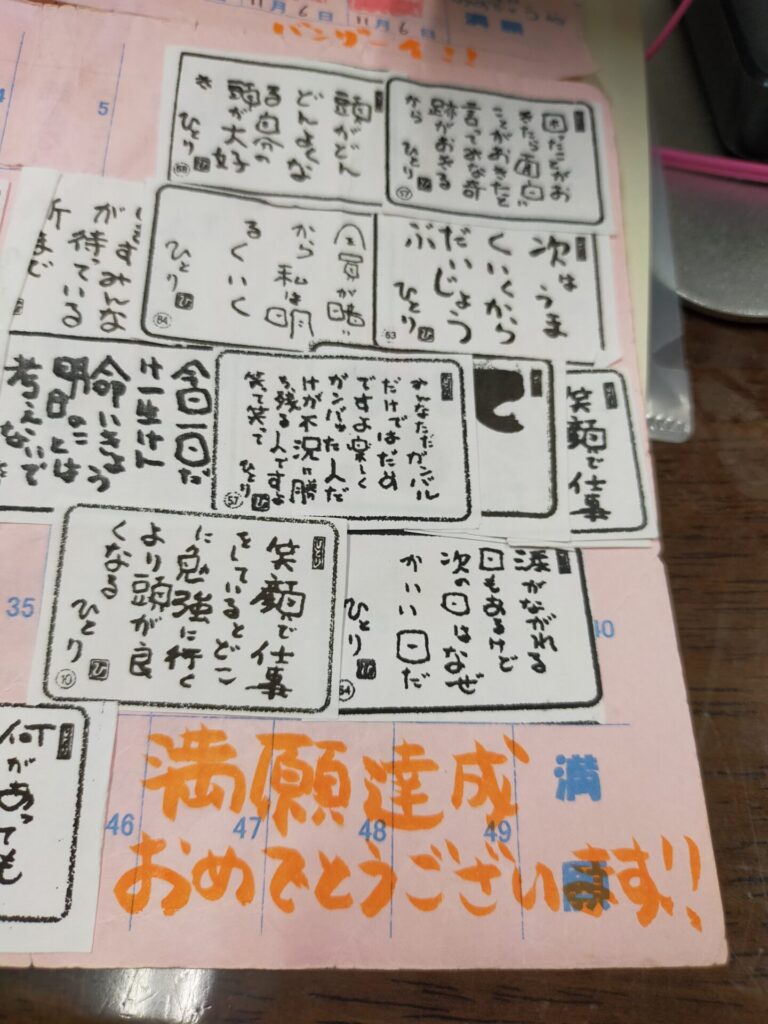 11月6日
11月6日
満願
バンザーイ!!
5
困たことがお
きたら面白い
ことがおきたと
言ってみな奇
跡がおきる
から
ひとり
17
頭がどん
どんよくな
る自分の
頭が大好
き
ひとり
88
次はうま
くいくから
だいじょう
ぶ
ひとり
63
全員が暗い
から私は明
るくいく
ひとり
84
すみんな
が待っている
所まで
笑顔で仕事
みんなただガンバル
だけではだめ
ですよ楽しく
ガンバった人だ
けが不況に勝
ち残る人ですよ
笑って笑って
ひとり
57
今日一日だ
け一生けん
命いきよう
明日のことは
考えないで
涙がながれる
日もあるけど
次の日はなぜ
かいい日だ
ひとり
笑顔で仕事
をしているとどこ
に勉強に行く
より頭が良
くなる
ひとり
10
35
40
何があっても
46
47
48
49
満願
満願達成
おめでとうございます!!